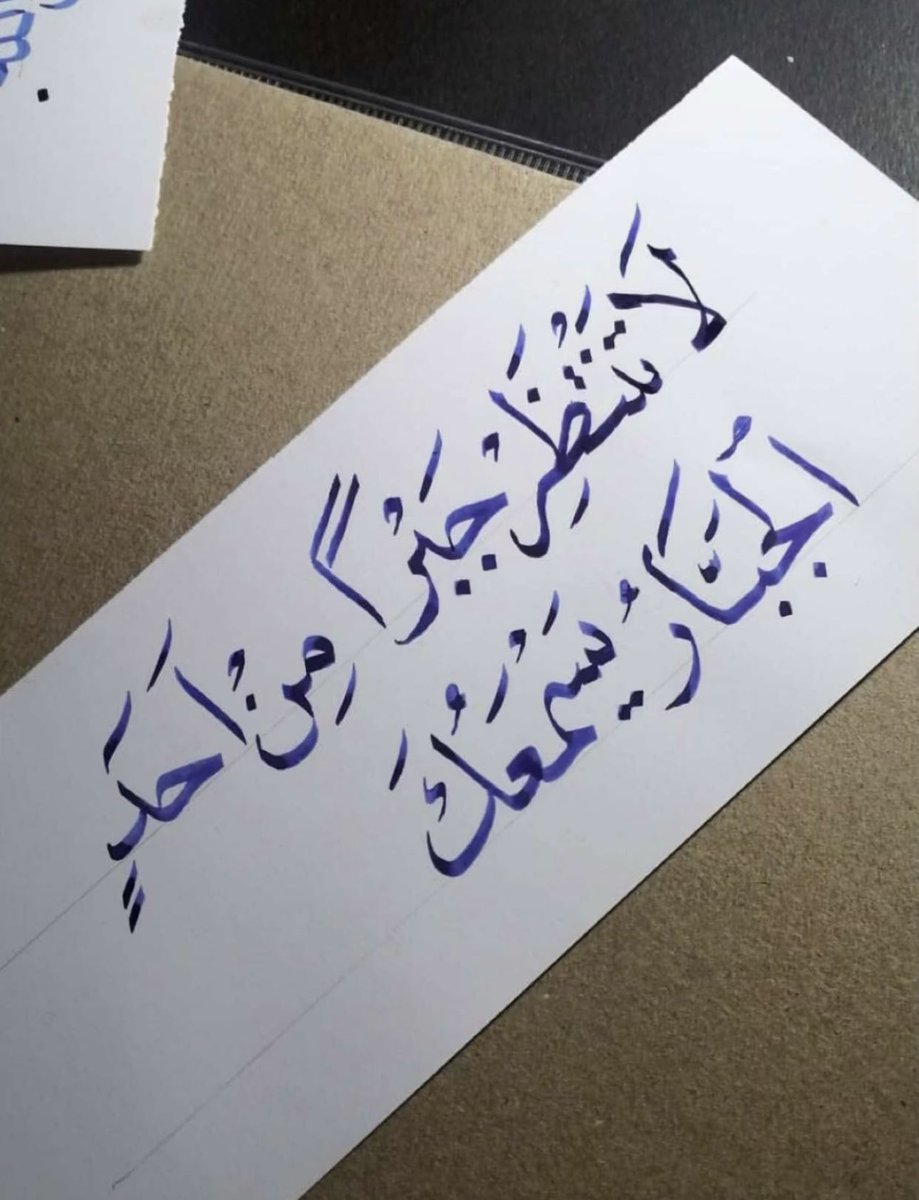 لَا تَنْتَظِرْ جَبْرًا مِنْ أَحَدٍ
الْجَبَّارُ يَسْمَعُكَ